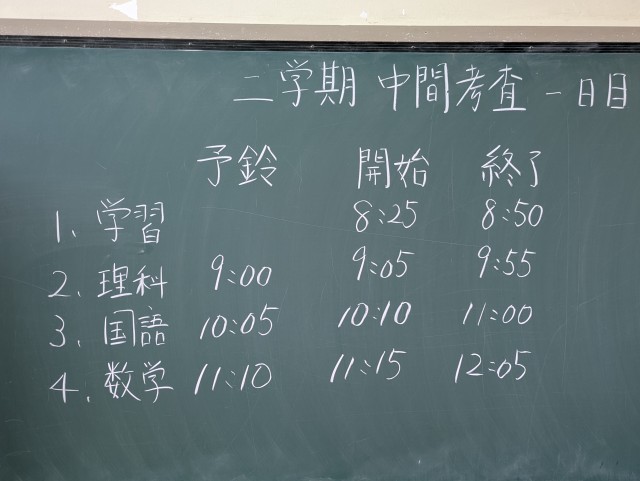 二学期 中間考査 一日目
予鈴 開始 終了
1. 学習 8:25 8:50
2. 理科 9:00 9:05 9:55
3. 国語 10:05 10:10 11:00
4. 数学 11:10 11:15 12:05